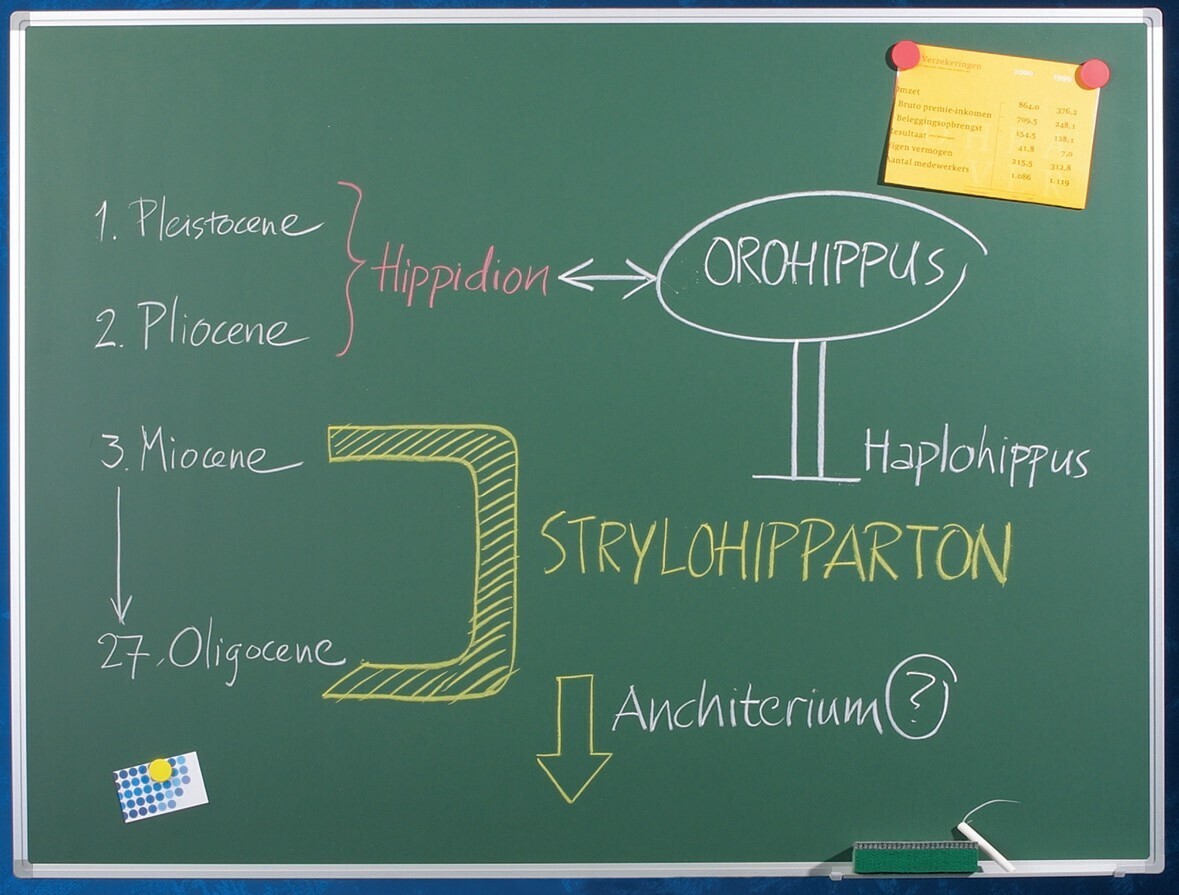 Verzekeringen
2000 1999
Omzet 864.0 376.2
Bruto premie-inkomen 709.5 248.1
Beleggingsopbrengst 154.5 128.1
Resultaat 41.8 7.0
Eigen vermogen 215.5 312.8
Aantal medewerkers 1.086 1.119
1. Pleistocene
Hippidion
OROHIPPUS
2. Pliocene
3. Miocene
Haplohippus
STRYLOHIPPARTON
27. Oligocene
Anchiterium ?